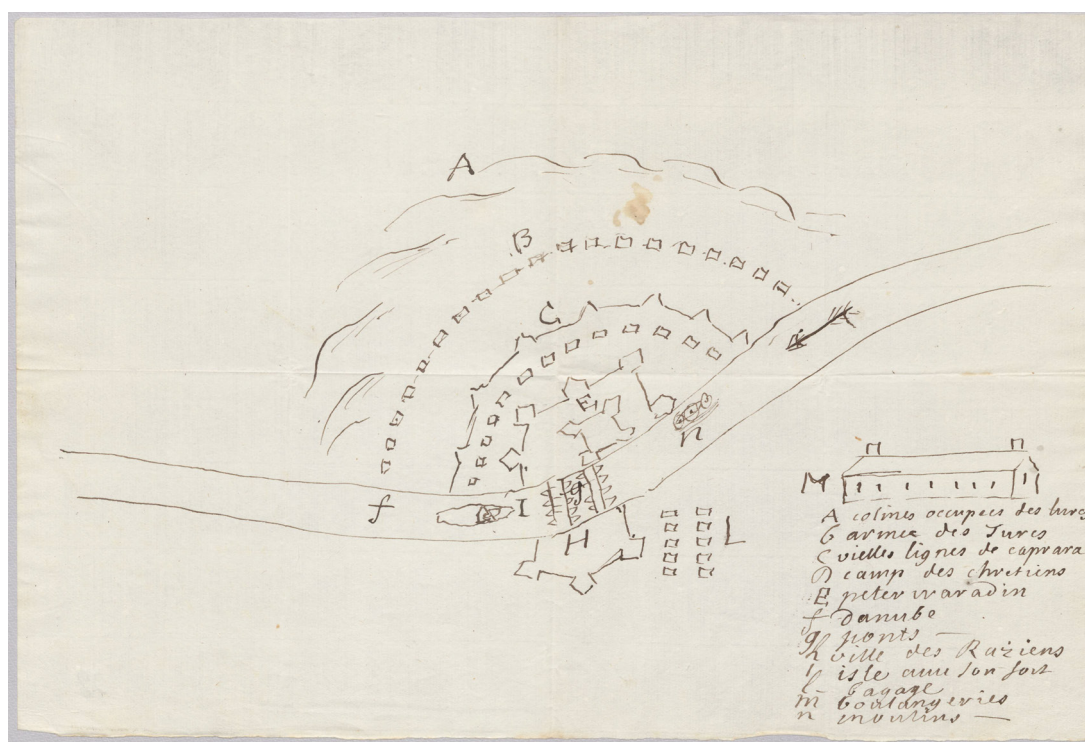 A
B
C
E
n
g
f
I
H
L
M
A colines occupees des turcs
b armee des Turcs
C vielles lignes de caprara
D camp des chretiens
E peter waradin
f danube
g ponts —
h ville des Raziens
I isle avec son fort
l bagage
m boulangeries
n moulins —